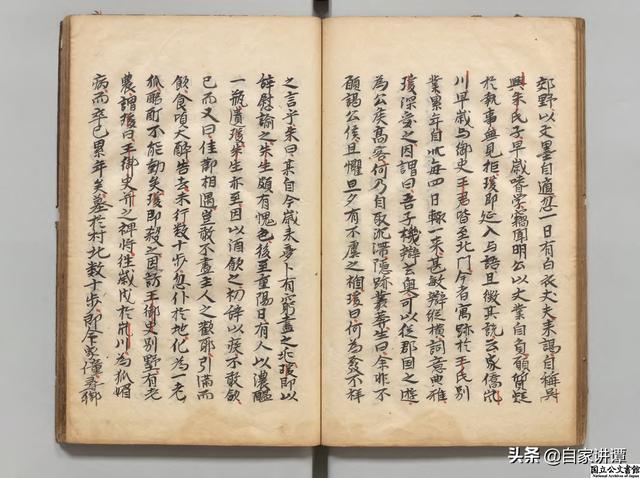 郊野以文墨自適忽一日有白衣丈夫来謁自称吳
興朱氏子早歲嗜学竊聞明公以文業自負願質疑
於執事無見拒瑗即延入与語且徴其説云家僑嵐
川早歲与御史王君皆至北門今者寓跡於王氏別
業累年自此每四日輙一来甚敏辯縱横詞意典雅
瑗深愛之因謂曰吾子機辯玄奥可以従郡国之遊
為公侯高客何乃自取沉滞隠跡叢莽生曰余非不
願謁公侯且懼旦夕有不虞之禍瑗曰何為発不祥
之言乎朱曰某自今歲来夢卜有窮盡之兆瑗即以
辞慰諭之朱生頗有愧色後至重陽日有人以濃醞
一瓶遺瑗朱生亦至因以酒飲之初辞以疾不敢飲
已而又曰佳節相遇豈敢不盡主人之歡耶引滿而
飲食頃大酔告去未行数十歩忽仆於地化為一老
狐酩酊不能動矣瑗即殺之因訪王御史別墅有老
農謂瑗曰王御史并之裨將往歲戍於嵐川為狐媚
病而卒已累年矣墓於村北数十歩即命家僮尋御
头条 @自家讲谭
国立公文書館
National Archives of Japan